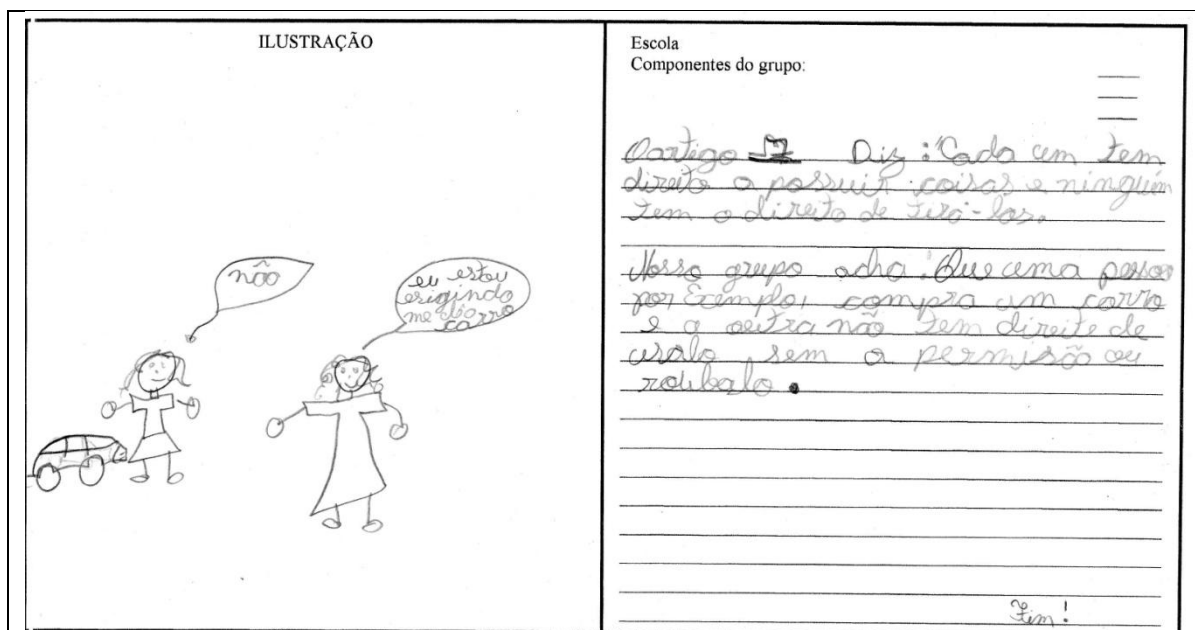 ILUSTRAÇÃO
não
eu estou
exigindo
me dê o
carro
Escola
Componentes do grupo:
O artigo 17 Diz: "Cada um tem
direito a possuir coisas e ninguém
tem o direito de tirá-las.
Nosso grupo acha: Que uma pessoa
por Exemplo, compra um carro
e a outra não tem direito de
usalo sem a permisão ou
roubalo.
Fim!